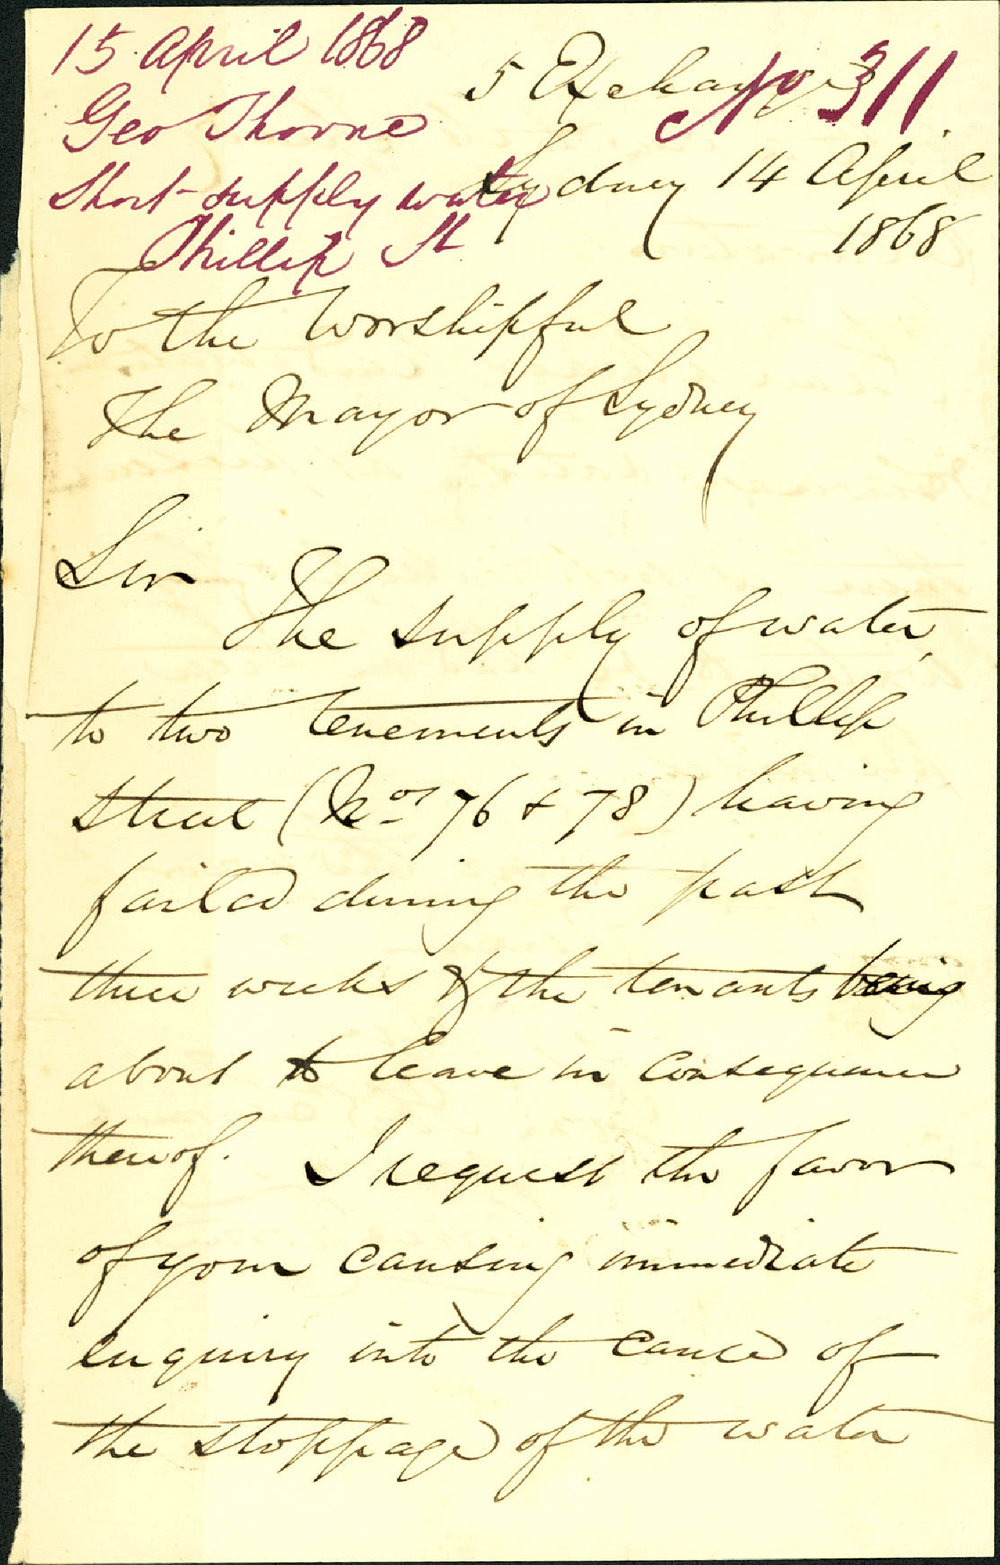 15 April 1868
Geo Thorne
Short supply water
Phillip St
No 311.
5 Exchange
Sydney 14 April
1868
To the Worshipful
The Mayor of Sydney
Sir
The supply of water,
to two tenements in Phillip
street (Nos 76 & 78) having
failed during the past
three weeks & the tenants being
about to leave in consequence
thereof. I request the favor
of your causing immediate
enquiry into the cause of
the stoppage of the water